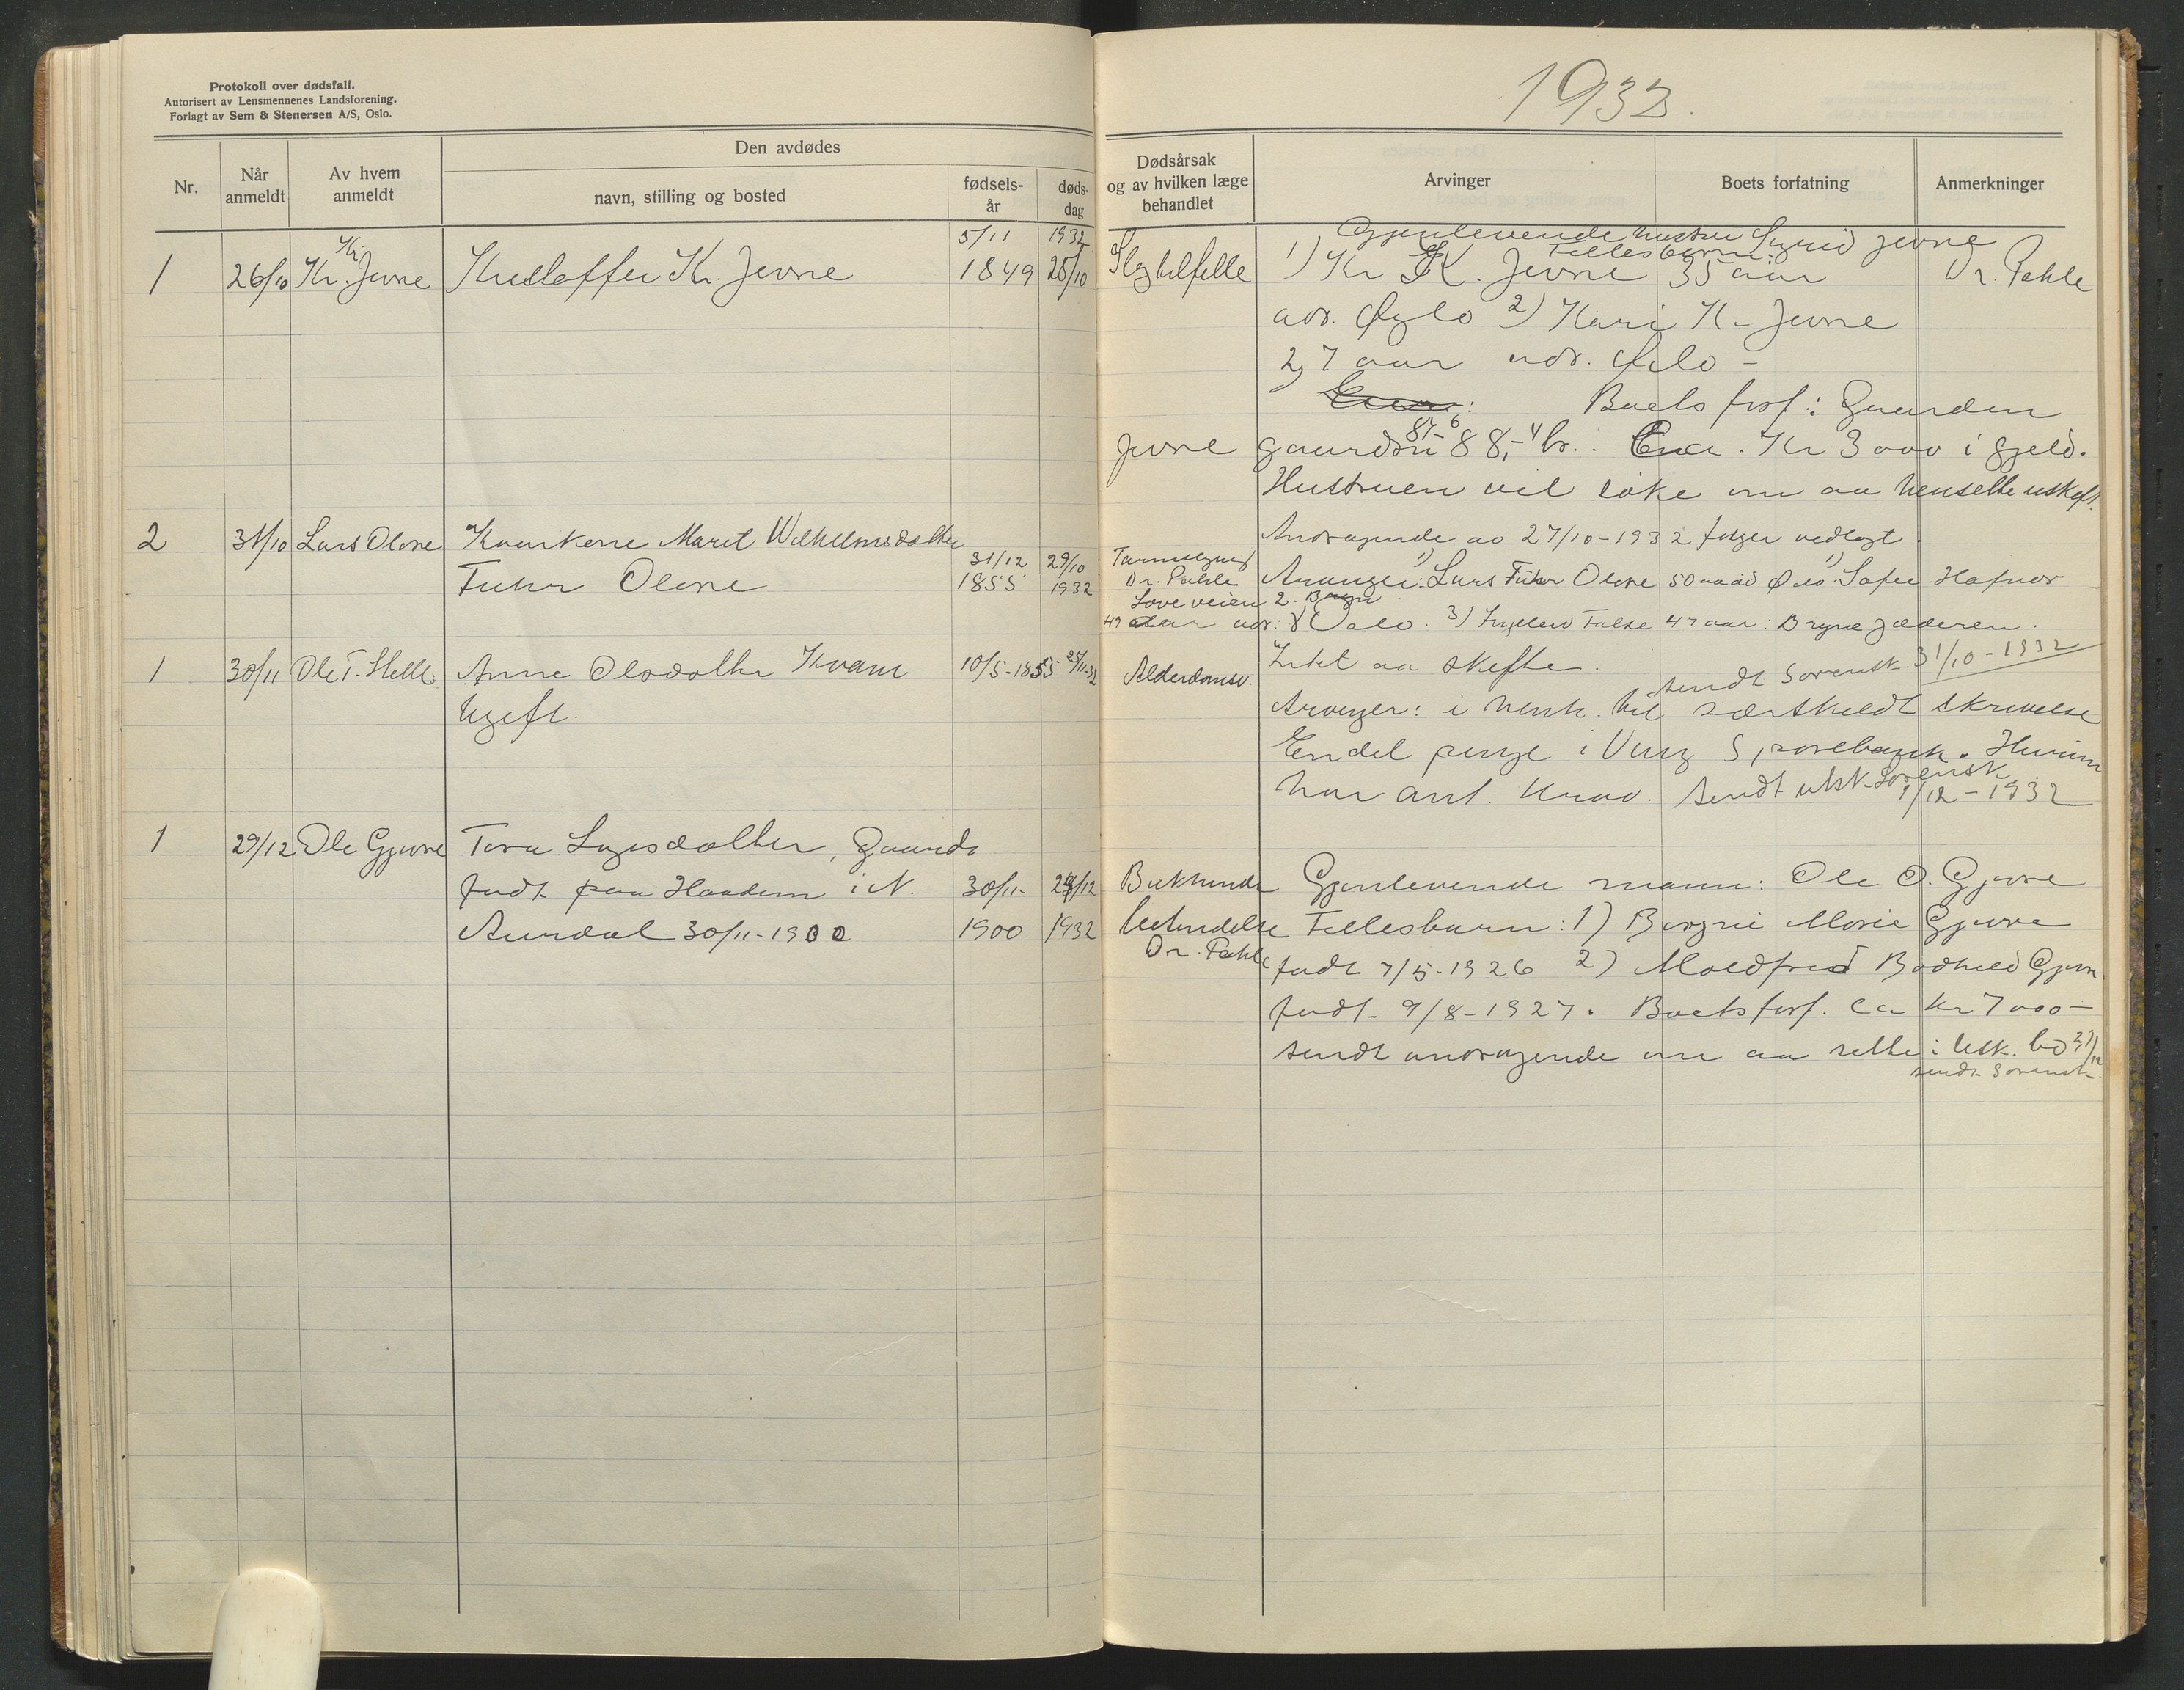 Protokoll over dødsfall.
Autorisert av Lensmennenes Landsforening.
Forlagt av Sem & Stenersen A/S, Oslo.
1932.
Nr.
Når anmeldt
Av hvem anmeldt
Den avdødes
navn, stilling og bosted
fødselsår
dødsdag
Dødsårsak og av hvilken læge behandlet
Arvinger
Boets forfatning
Anmerkninger
1 26/10 Kr. Kr. Jevne Kristoffer Kr. Jevne 5/11 1849 1932 25/10 Slagtilfelle
Gjenlevende hustru Sigrid Jevne
Fellesbarn:
1) Kr K. Jevne 35 aar Dr. Pahle
adr. Oslo 2) Kari K. Jevne
27 aar adr. Oslo -
Boets forf: Gaarden
Jevne gaardsn 87-6 88,-4 br. Ca. Kr 3000 i gjeld.
Hustruen vil søke om aa hensitte i uskift.
Andragende av 27/10-1932 følger vedlagt.
2 31/10 Lars Olsne Kaarkone Marit Wilhelmsdatter
Fuhr Olsne 31/12 1855 29/10 1932
Dr. Pahle Arvinger: 1) Lars Fuhr Olsne 50 aar Oslo
49 aar adr: Oslo. 3) 47 aar: Bryne Jæderen.
Intet aa skifte. sendt Sorensk. 31/10-1932
1 30/11 Ole T. Anne Olsdatter Kvam 10/5-1855 Alderdomsv.
Ugift.
Arvinger: i henh. til særskildt skrivelse
Endel penge i Vang Sparebank. Hvem
har ant. krav. sendt utsk. Sorensk. 1/12-1932
1 29/12 Ole Gjevre Tora Larsdatter, Gaardk.
født paa i N. 30/11- 1900 /12 1932
Aurdal 30/11-1900
Bukhinde betendelse Dr. Pahle
Gjenlevende mann: Ole O. Gjevre
Fellesbarn: 1) Borgni Marie Gjevre
født 7/5-1926 2) Moldfrid Bodhild Gjevre
født 9/8-1927. Boets forf. ca kr 7000-
sendt andragende om aa sitte i usk. bo
sendt Sorensk.